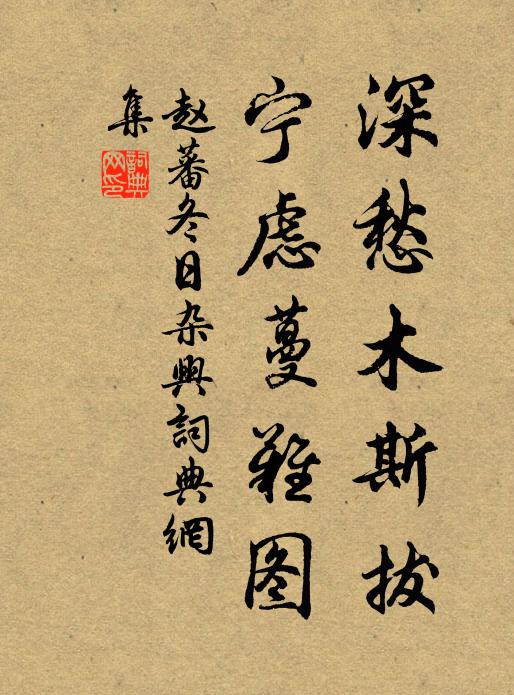 深愁木斯拔
宁虑蔓难图
赵蕃冬日杂興詞典網
集
詞典网印